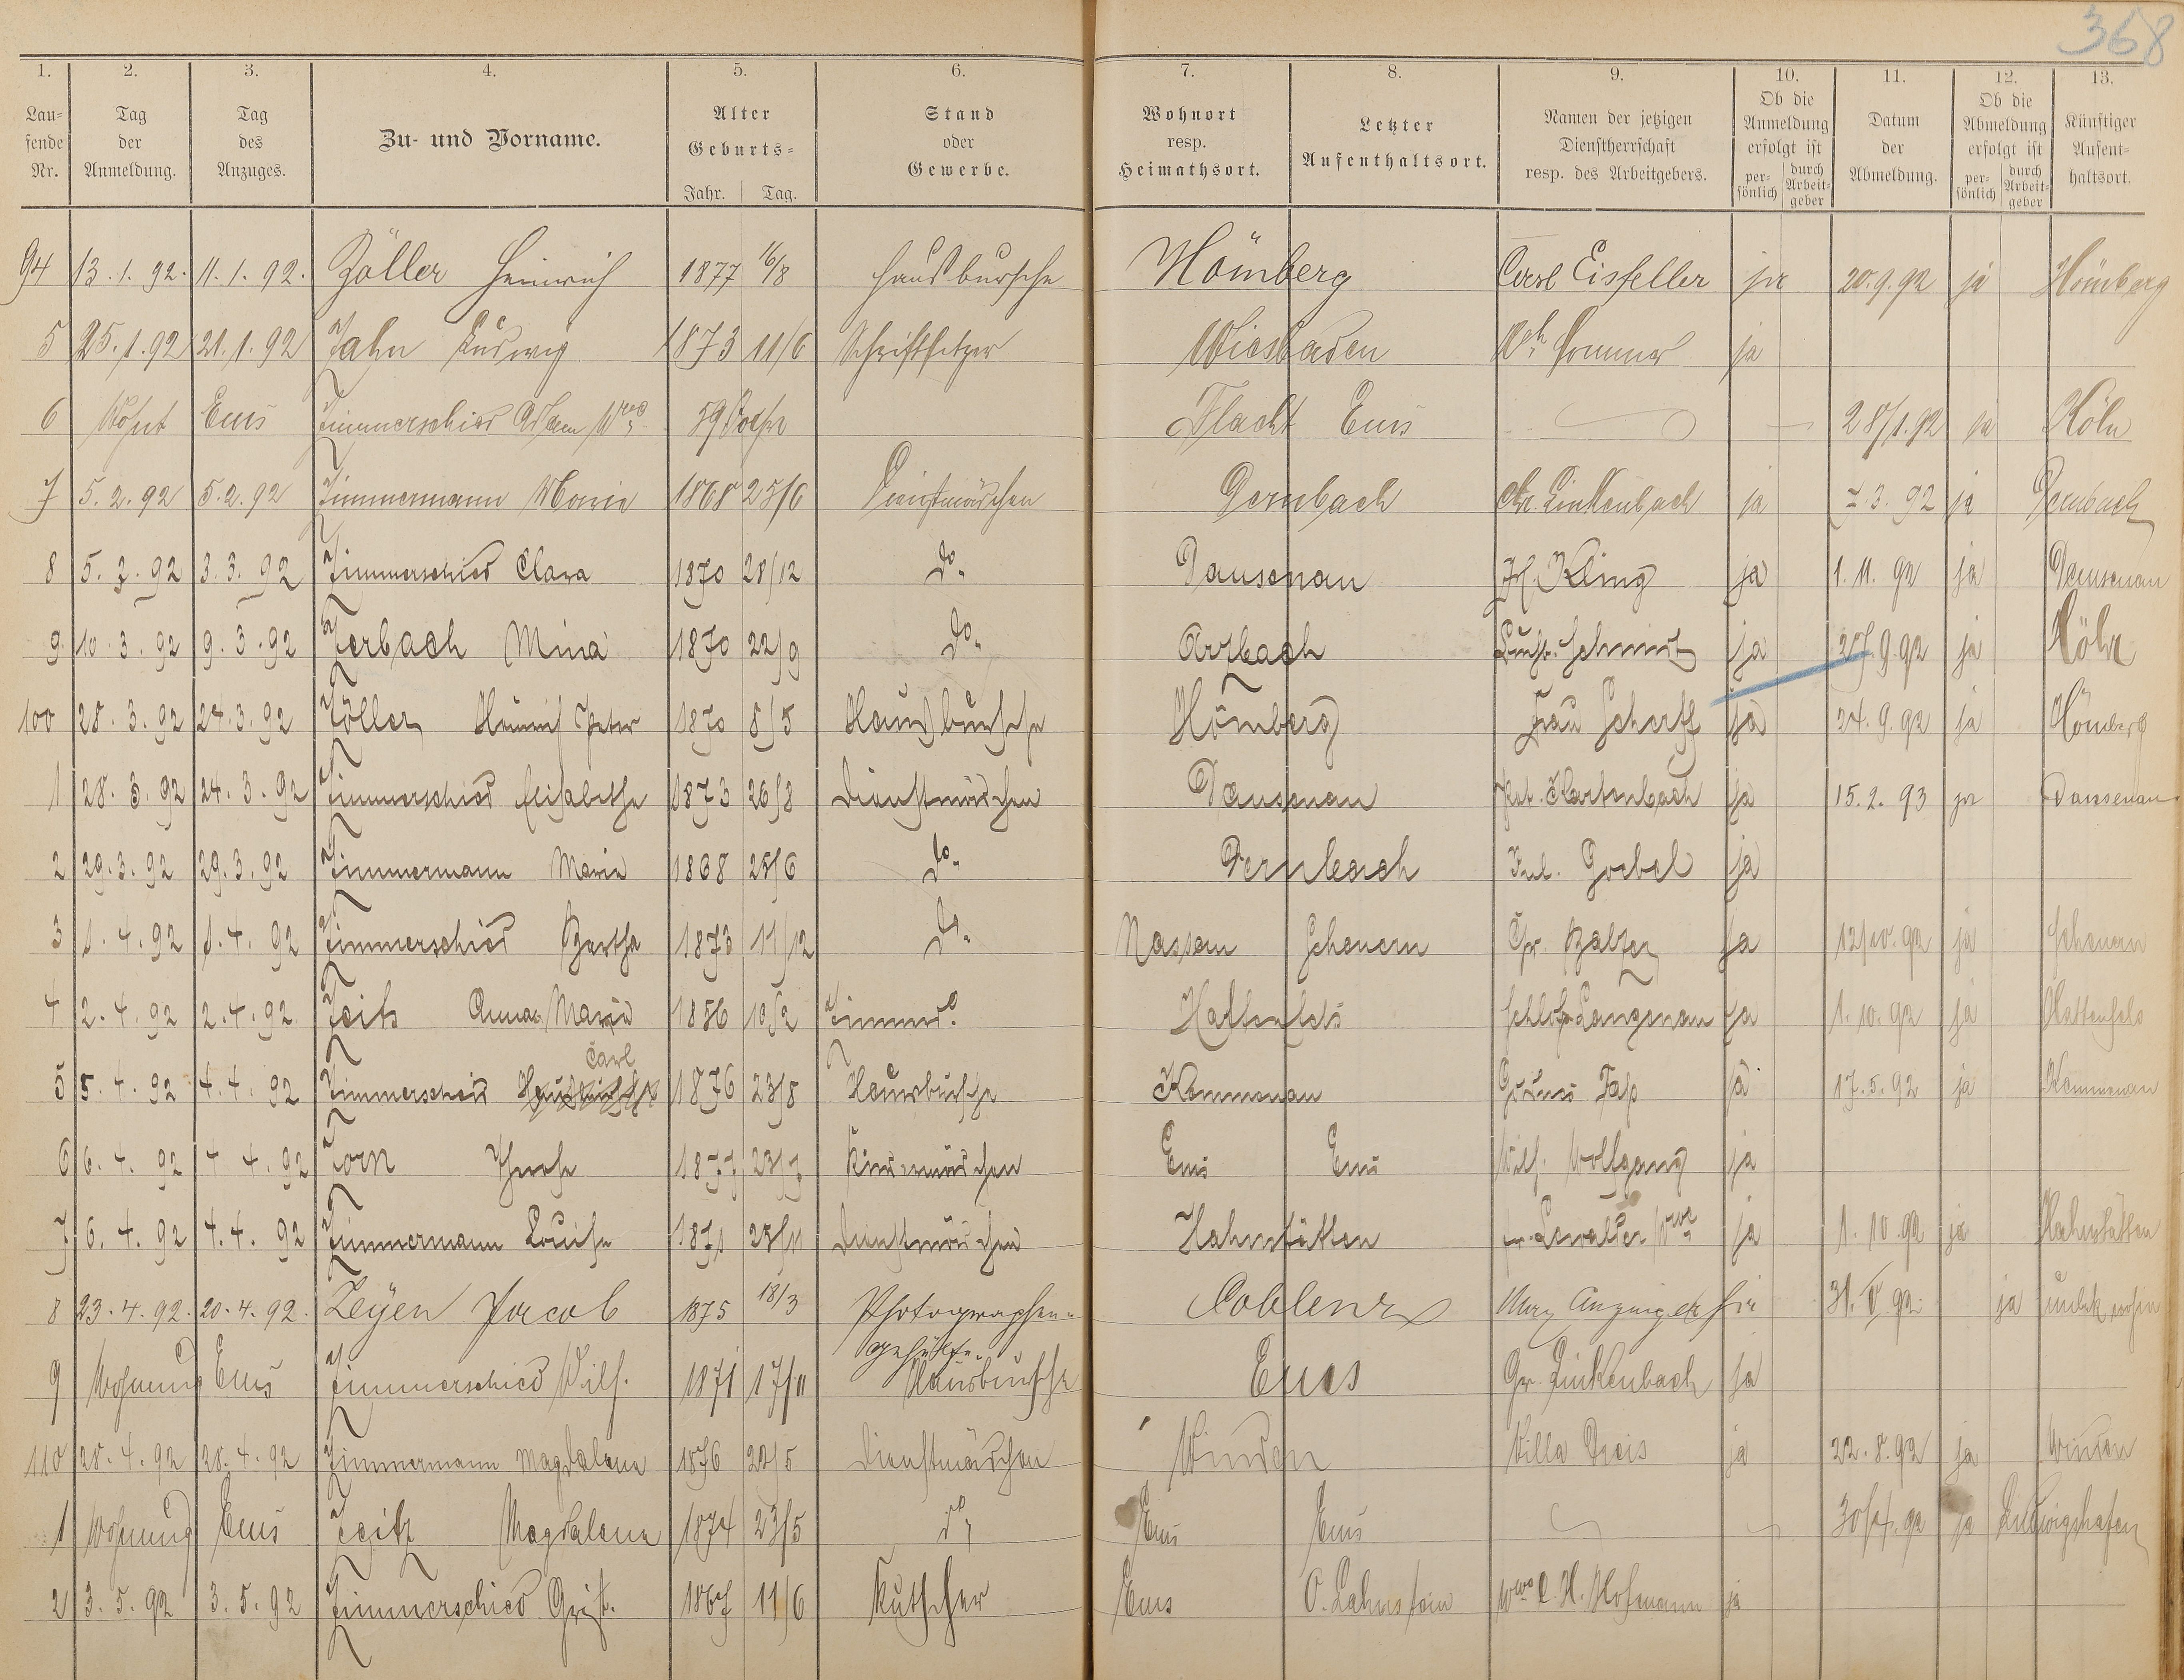 368
1. 2. 3. 4. 5. 6. 7. 8. 9. 10. 11. 12. 13.
Laufende Nr. Tag der Anmeldung. Tag des Anzuges. Zu- und Vorname. Alter Geburts- Jahr. Tag. Stand oder Gewerbe. Wohnort resp. Heimathsort. Letzter Aufenthaltsort. Namen der jetzigen Dienstherrschaft resp. des Arbeitgebers. Ob die Anmeldung erfolgt ist persönlich durch Arbeitgeber Datum der Abmeldung. Ob die Abmeldung erfolgt ist persönlich durch Arbeitgeber Künftiger Aufenthaltsort.
94 13.1.92. 11.1.92. Zöller Heinrich 1877 16/8 Hausbursche Hömberg Carl Eisfeller ja 20.9.92 ja Hömberg
5 25.1.92 21.1.92 Zahn Ludwig 1873 11/6 Schriftsetzer Wiesbaden Wh Sommer ja
6 Wohnt Ems Zimmerschied Adam Wwe 59 Jahr Flacht Ems 28/1.92 ja Köln
7 5.2.92 5.2.92 Zimmermann Maria 1868 25/6 Dienstmädchen Dernbach Chr. Linkenbach ja 3.92 ja Dernbach
8 5.3.92 3.3.92 Zimmerschied Clara 1870 28/12 do. Dausenau Kling ja 1.11.92 ja Dausenau
9 10.3.92 9.3.92 Zerbach Mina 1870 22/9 do. Arzbach Schmidt ja 27.9.92 ja Höhr
100 28.3.92 24.3.92 Zöller Heinrich Peter 1870 8/5 Hausbursche Hömberg Frau Scharff ja 24.9.92 ja Hömberg
1 28.3.92 24.3.92 Zimmerschied Elisabethe 1873 26/8 Dienstmädchen Dausenau Hartenbach ja 15.2.93 ja Dausenau
2 29.3.92 29.3.92 Zimmermann Maria 1868 25/6 do. Dernbach Goebel ja
3 1.4.92 1.4.92 Zimmerschied Bertha 1873 11/12 do. Nassau Scheuern Gr. Balzer ja 12/10.92 ja Scheuern
4 2.4.92 2.4.92 Zeits Anna Maria 1856 10/2 Zimmerd. Hattenfels Schloß Langenau ja 1.10.92 ja Hattenfels
Carl
5 5.4.92 4.4.92 Zimmerscheid 1876 23/8 Hausbursche Kemmenau ja 17.5.92 ja Kemmenau
6 6.4.92 4.4.92 Zorn 1877 23/7 Kindermädchen Ems Ems Wilh. Wolfgang ja
7 6.4.92 4.4.92 Zimmermann Louise 1871 28/11 Dienstmädchen Hahnstätten Lewalter Wwe ja 1.10.92 ja Hahnstätten
8 23.4.92. 20.4.92. Zeyen Jacob 1875 18/3 Photographen- Coblenz 31.V.92. ja
gehülfe.
9 Wohnung Ems Zimmerschied Wilh. 1871 17/11 Hausbursche Ems Gr. Linkenbach ja
110 28.4.92 28.4.92 Zimmermann Magdalena 1876 22/5 Dienstmädchen Winden Villa Dreis ja 22.8.92 ja Winden
1 Wohnung Ems Zeitz Magdalena 1874 23/5 do. Ems Ems 30/4.92 ja Ludwigshafen
2 3.5.92 3.5.92 Zimmerschied Christ. 1867 11/6 Kutscher Ems O. Lahnstein Wwe C. H. Hofmann ja